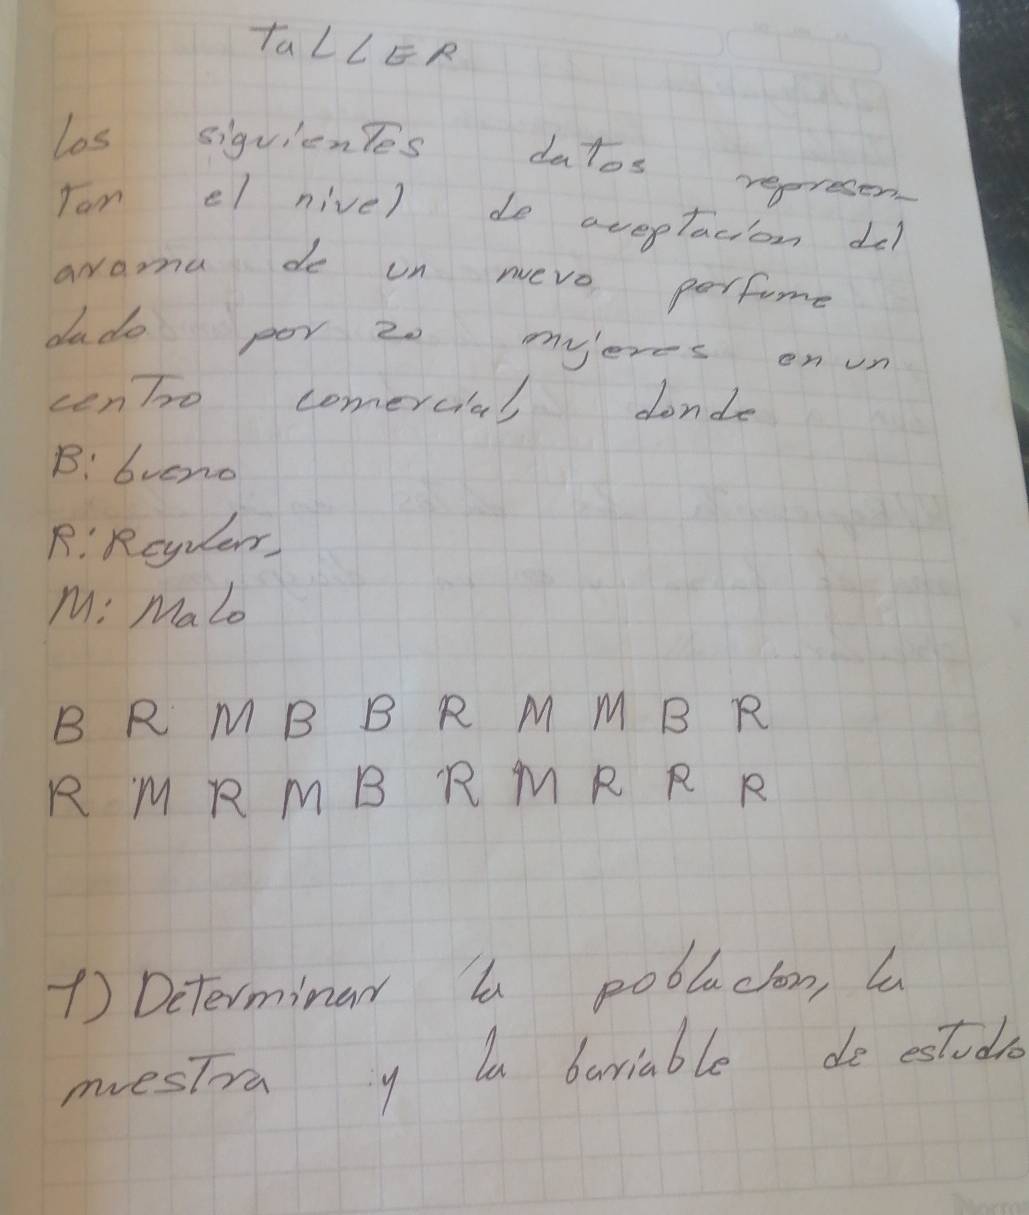 TaLLER
los siguientes datos represen-
Tan el nivel de aceptacion del
aroma de un nuevo perfume
dado por 20 mujeres en un
cenTro comercial, donde
B: bueno
R: Regular,
M: Malo
B R M B B R M M B R
R M R M B R M R R R
1) DeTerminar la poblacion, la
muesTra y la bariable de esTudio